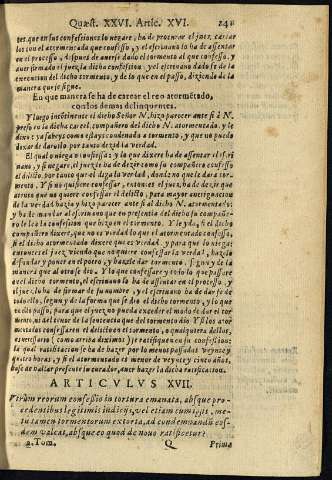 Quæst. XXVI. Artic. XVI. 241
tes, que en sus confessiones lo negare, ha de procurar el juez, carear
los con el atormentado que confesso, y el escriuano lo ha de assentar
en el processo, despues de auerse dado el tormento al que confesso, y
auer firmado el juez la dicha confession, y el escriuano dado fe de la
execucion del dicho tormento, y de lo que en el passo, diziendo de la
manera que se sigue.
En que manera se ha de carear el reo atormētado,
con los demas delinquentes.
Y luego incōtinente el dicho Señor N. hizo parecer ante si à N.
preso en la dicha carcel, compañero del dicho N. atormentado, y le
dixo: ya sabeys como estays condenado a tormento, y que no puedo
dexar de daroslo, por tanto dezid la verdad.
El qual o niega o confiessa: y lo que dixere ha de assentar el escri
uano, y si negare, el juez le ha de dezir como su compañero confesso
el delicto, por tanto que el diga la verdad, donde no que le dara tor
mento. Y si no quisiere confessar, entonces el juez ha de dezir que
atento que no quiere confessar el delicto, para mayor aueriguacion
de la verdad hazia y hizo parecer ante si al dicho N. atormentado:
y ha de mandar al escriuano que en presencia del dicho su compañe-
ro le lea la confession que hizo en el tormento. Y leyda, si el dicho
compañero dixere, que no es verdad lo que el atormentado confessa,
si el dicho atormentado dixere que es verdad, y para que lo niega:
entonces el juez viendo que no quiere confessar la verdad, hazerle
desnudar y poner en el potro, y hazerle dar tormento, segun y de la
manera que al otro se dio. Y lo que confessare y todo lo que passare
en el dicho tormento, el escriuano lo ha de assentar en el processo, y
el juez lo ha de firmar de su nombre, y el escriuano ha de dar fe de
todo ello, segun y de la forma que se dio el dicho tormento, y lo que
en esto passo, para que el juez no pueda exceder el modo de dar el tor
mento, ni del tenor de la sentencia que del tormento dio. Y si los ator
mentados confessaren el delicto en el tormento, o qualquiera dellos,
es necessario (como arriba diximos) se ratifiquen en su confession:
la qual ratificacion se ha de hazer por lo menos passadas veynte y
quatro horas, y si el atormentado es menor de veynte y cinco años,
ha se de hallar presente su curador, a ver hazer la dicha ratificacion.
ARTICVLVS XVII.
Vtrum reorum confessio in tortura emanata, absque præ-
cedentibus legitimis indicijs, vel etiam cum ipsis, me-
tu tamen tormentorum extorta, ad condemnandũ eos-
dem valeat, absque eo quod de nouo ratificetur?
2. Tom. Q Prima